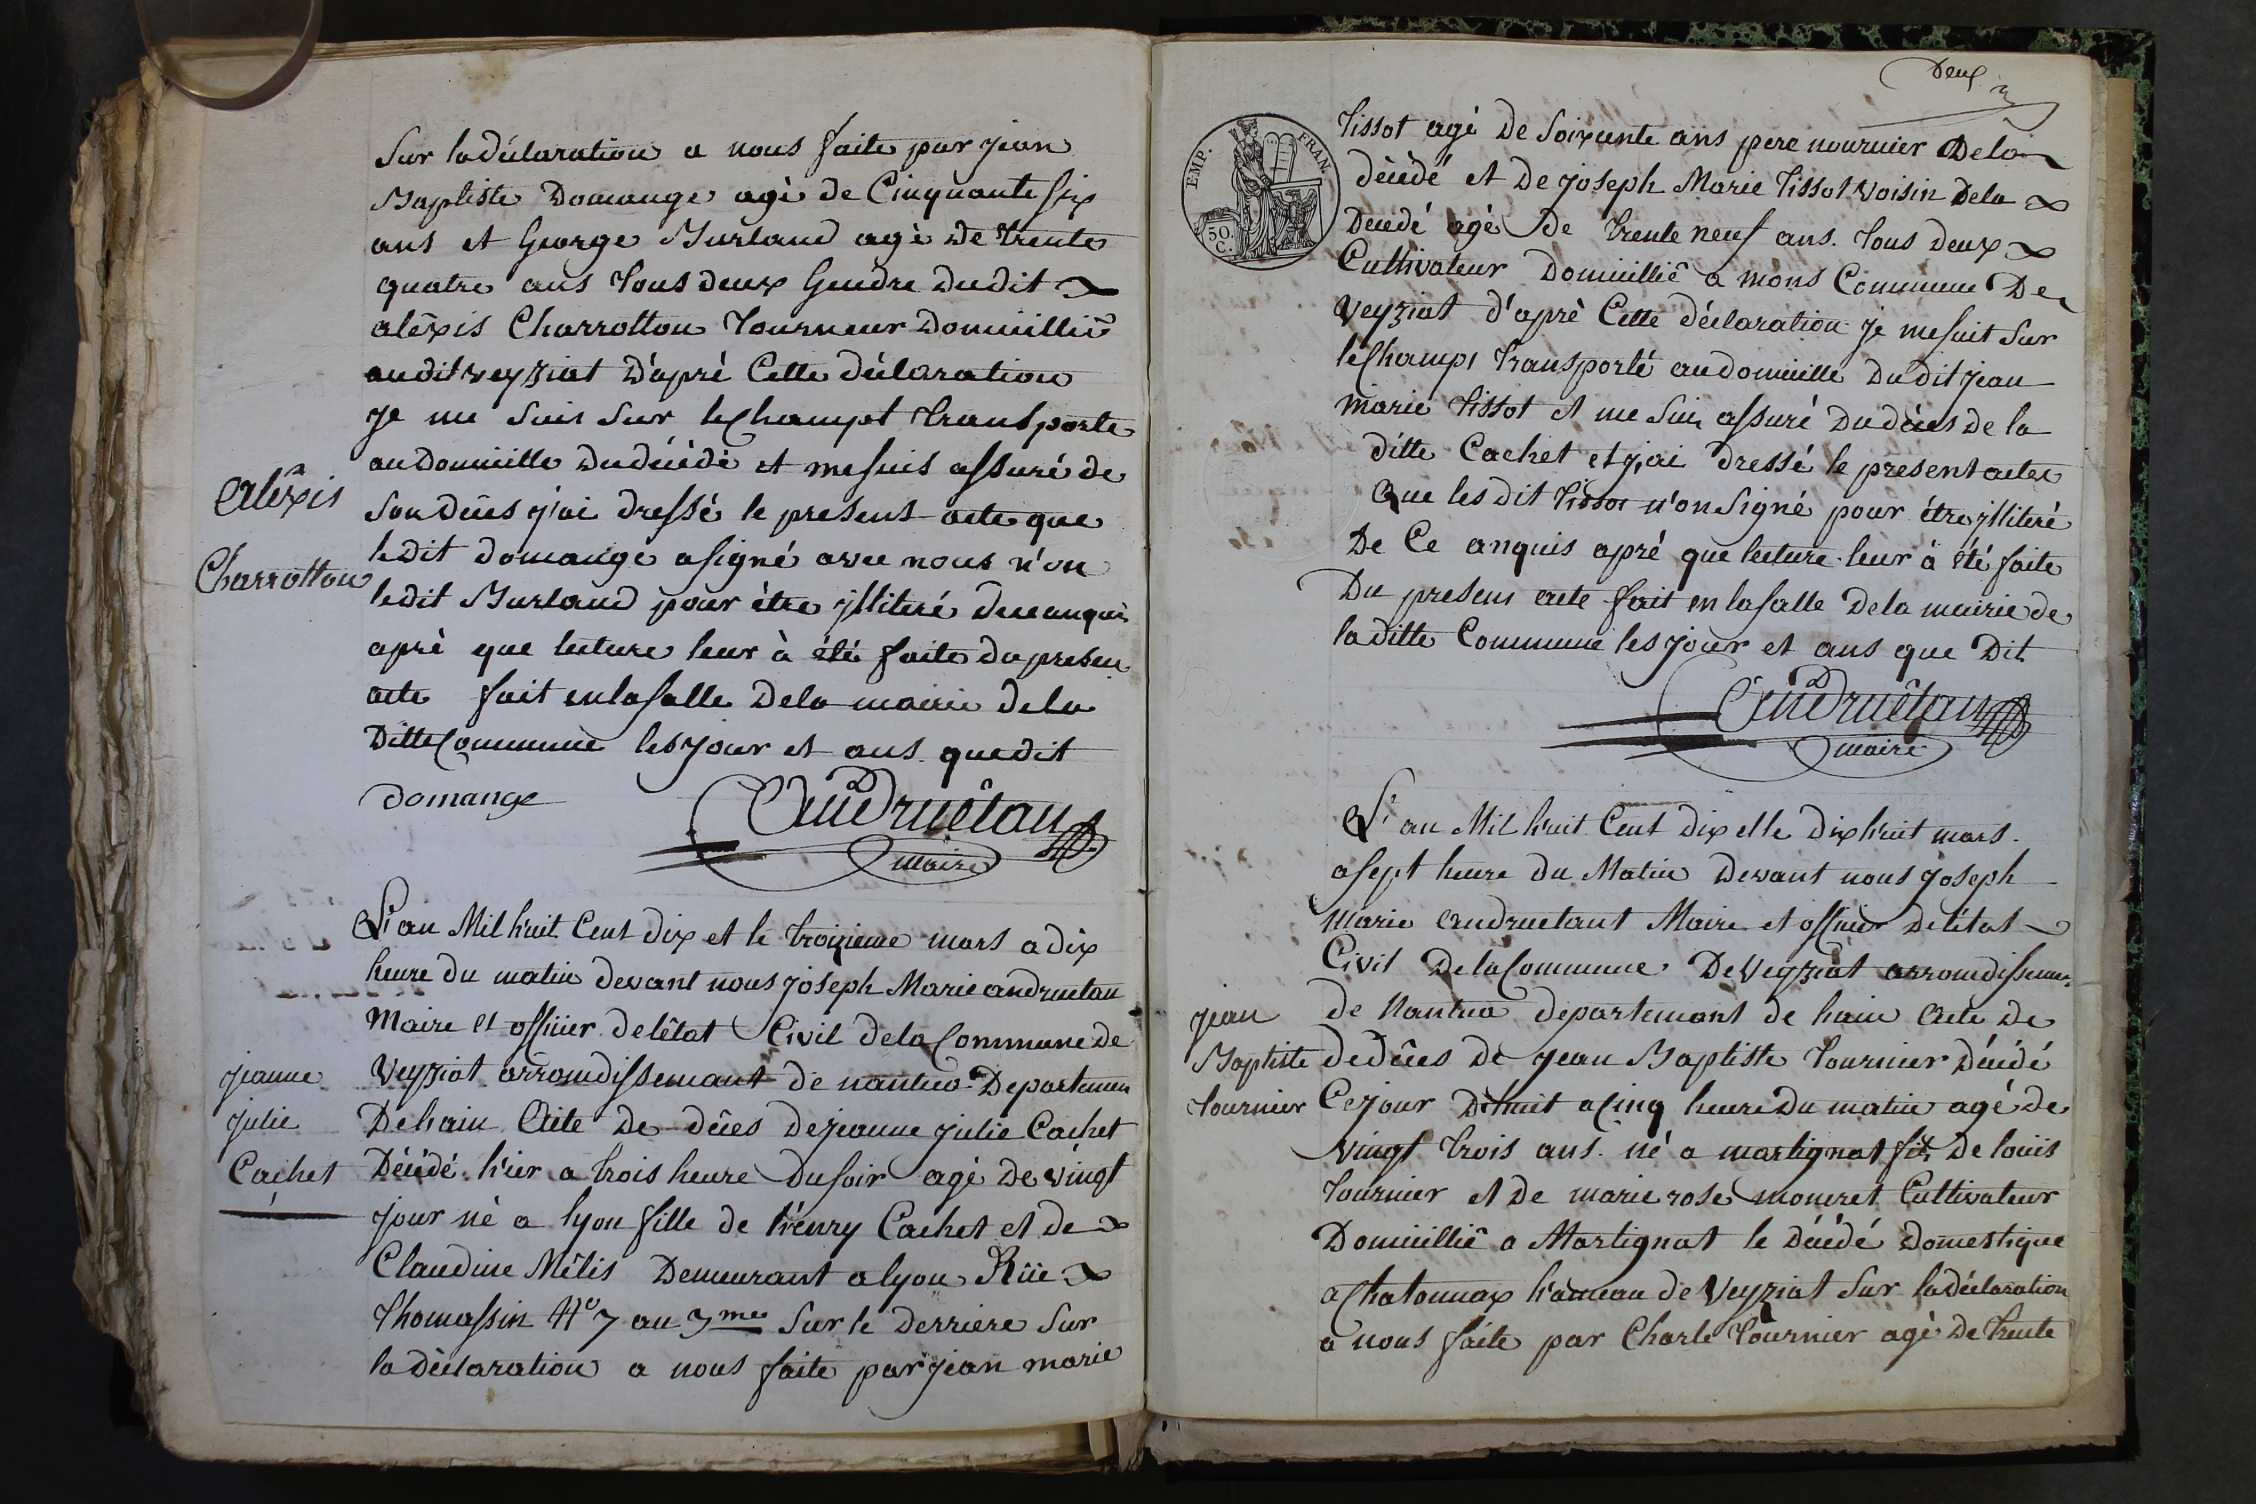 Sur la déclaration a nous faite par jean
Baptiste Domange agè de Cinquante six
ans et George Burland agè de trente
quatre ans tous deux Gendre dudit
alêxis Charrotton tourneur Domicillié
audit veyziat D'apré Cette déclaration
je me suis sur le Champt transporte
au Domicille du décédé et me suis assuré de
son dèces j'ai dressé le present acte que
le dit domange a signé avec nous n'on
le dit Burland pour ètre illiteré de ce anquis
aprè que lecture leur à été faite du presen
acte fait en la salle De la mairie de la
Ditte Commune les jour et ans que dit
domange
Andruêtan
maire
Alêxis
Charrotton
L'an Mil huit Cent dix et le troizieme mars a dix
heure du matin devant nous joseph Marie andruetan
Maire et officier de létat Civil de la Commune de
Veyziat arrondissemant de nantua Departemen
De hain Acte De dêces De jeanne julie Cachet
Décédé hier a trois heure du soir agè de vingt
jour nè a lyon fille de henry Cachet et de
Claudine Mêlis Demeurant a lyon Rüe
Thomassin N° 7 au 3me sur le derriere Sur
la dèclaration a nous faite par jean marie
jeanne
julie
Cachet
Deux
2
EMP. FRAN.
50. C.
tissot agé De soixante ans pere nourricier De la
dècèdé et De joseph Marie tissot voisin De la
Décédé agè De trente neuf ans. tous deux
Cultivateur Domicillié a mons Commune De
Veyziat d'aprè Cette déclaration je me suit sur
le Champs transporté au domicille Du dit jean
marie tissot et me suis assuré Du dèces de la
ditte Cachet et j'ai dressé le present acte
que les dit tissot n'on signé pour étre illiteré
De Ce anquis apré que lecture leur à été faite
Du presens acte fait en la salle De la mairie de
la ditte Commune les jour et ans que Dit
Andruêtan
maire
L'an Mil huit Cent dix et le dix huit mars.
a sept heure du Matin Devant nous joseph
Marie andruetant Maire et officier De létat
Civil De la Commune De Veyziat arrondissemen
de Nantua departemant de hain Acte De
de dêces de jean Baptiste tournier Décédé
Ce jour D'huit a Cinq heure Du matin agé de
vingt trois ans. né a martignat fils De louïs
tournier et De marie rose moncret Cultivateur
Domicillié a Martignat le Décédé Domestique
a Chatonnax hameau de Veyziat sur la déclaration
a nous faite par Charle tournier agè De trente
jean
Baptiste
tournier